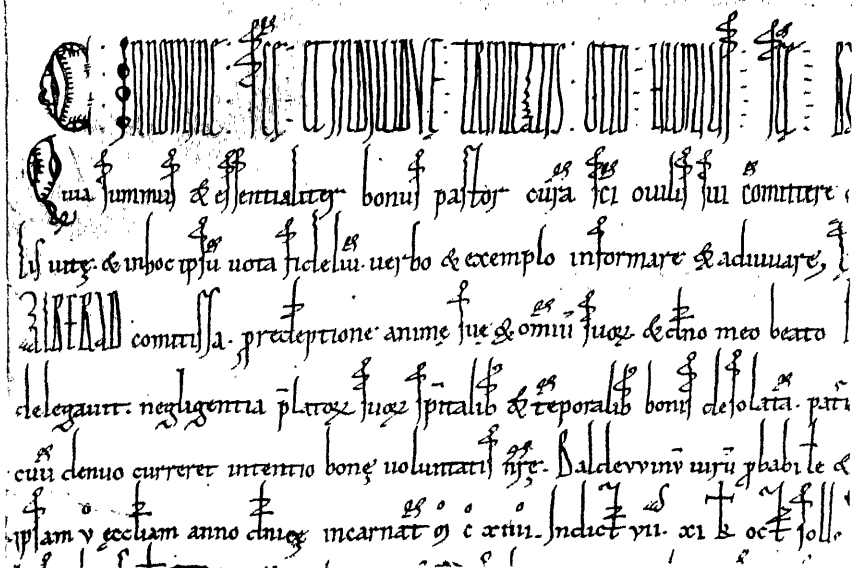 IN NOMINE SCE ET INDIVIDUE TRINITATIS
Quia summus & essentialiter bonus pastor cura sci ouilis sui comittere
lis uite. & in hoc ipsu uota fideliu. uerbo & exemplo informare & adiuuare,
comitissa. p redeptione anime sue & omiu suoꝝ & dno meo beato
delegauit. negligentia platoꝝ suoꝝ spitalib & teporalib bonis desolata.
cuu denuo curreret intentio bone uoluntatis nre. Baldevvinu uiru pbabile &
ipsam v ęccliam anno dnice incarnat m c xiiii. Indict vii. xi k oct